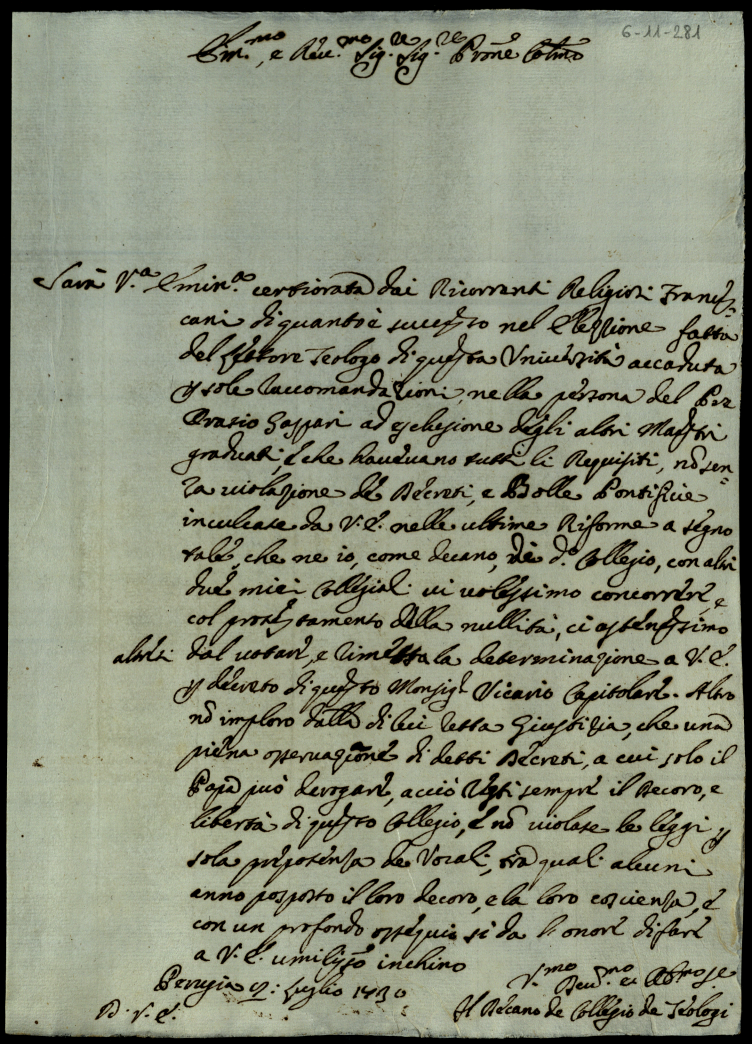 6-11-281
Em.mo, e Rev.mo Sig.re Sig.re Prone Colmo
Sarà V.a Emin.a certiorata dai Ricorrenti Religiosi Frances-
cani di quanto è successo nel Elezzione fatta
del Lettore Teologo di questa Università accaduta
p sole raccomandazioni, nella persona del Pre
Orasio Gaspari ad esclusione degli altri Maestri
graduati, e che havevano tutti li Requisiti, nō sen-
za violazione de Decreti, e Bolle Pontificie
inculcate da V.E. nelle ultime Riforme a segno
tale, che ne io, come decano, de d.o Collegio, con altri
due miei Collegiali vi volessimo concorrere, e
col protestamento della nullità, ci astenessimo
altresi dal votare, e rimessa la determinazione a V.E.
p decreto di questo Monsig.r Vicario Capitolare. Altro
nō imploro dalla di lei retta Giustizia, che una
piena osservazione di detti Decreti, a cui solo il
Papa può derogare, acciò resti sempre il Decoro, e
libertà di questo Collegio, e nō violate le leggi p
sola prepotenza de Vocali, tra quali alcuni
anno posposto il loro decoro, e la loro coscienza, e
con un profondo ossequio si da l'onore di fare
a V.E. umilissō inchino
Perugia Luglio 1730
D. V. E.
V.mo Dev.mo et Obmo Se
Il Decano de Collegio de Teologi